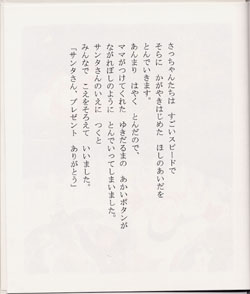 さっちゃんたちは　すごいスピードで
そらに　かがやきはじめた　ほしのあいだを
とんでいきます。
あんまり　はやく　とんだので、
ママがつけてくれた　ゆきだるまの　あかいボタンが
ながれぼしのように　とんでいってしまいました。
サンタさんのいえに　つくと
みんなで　こえをそろえて　いいました。
「サンタさん、プレゼント　ありがとう」